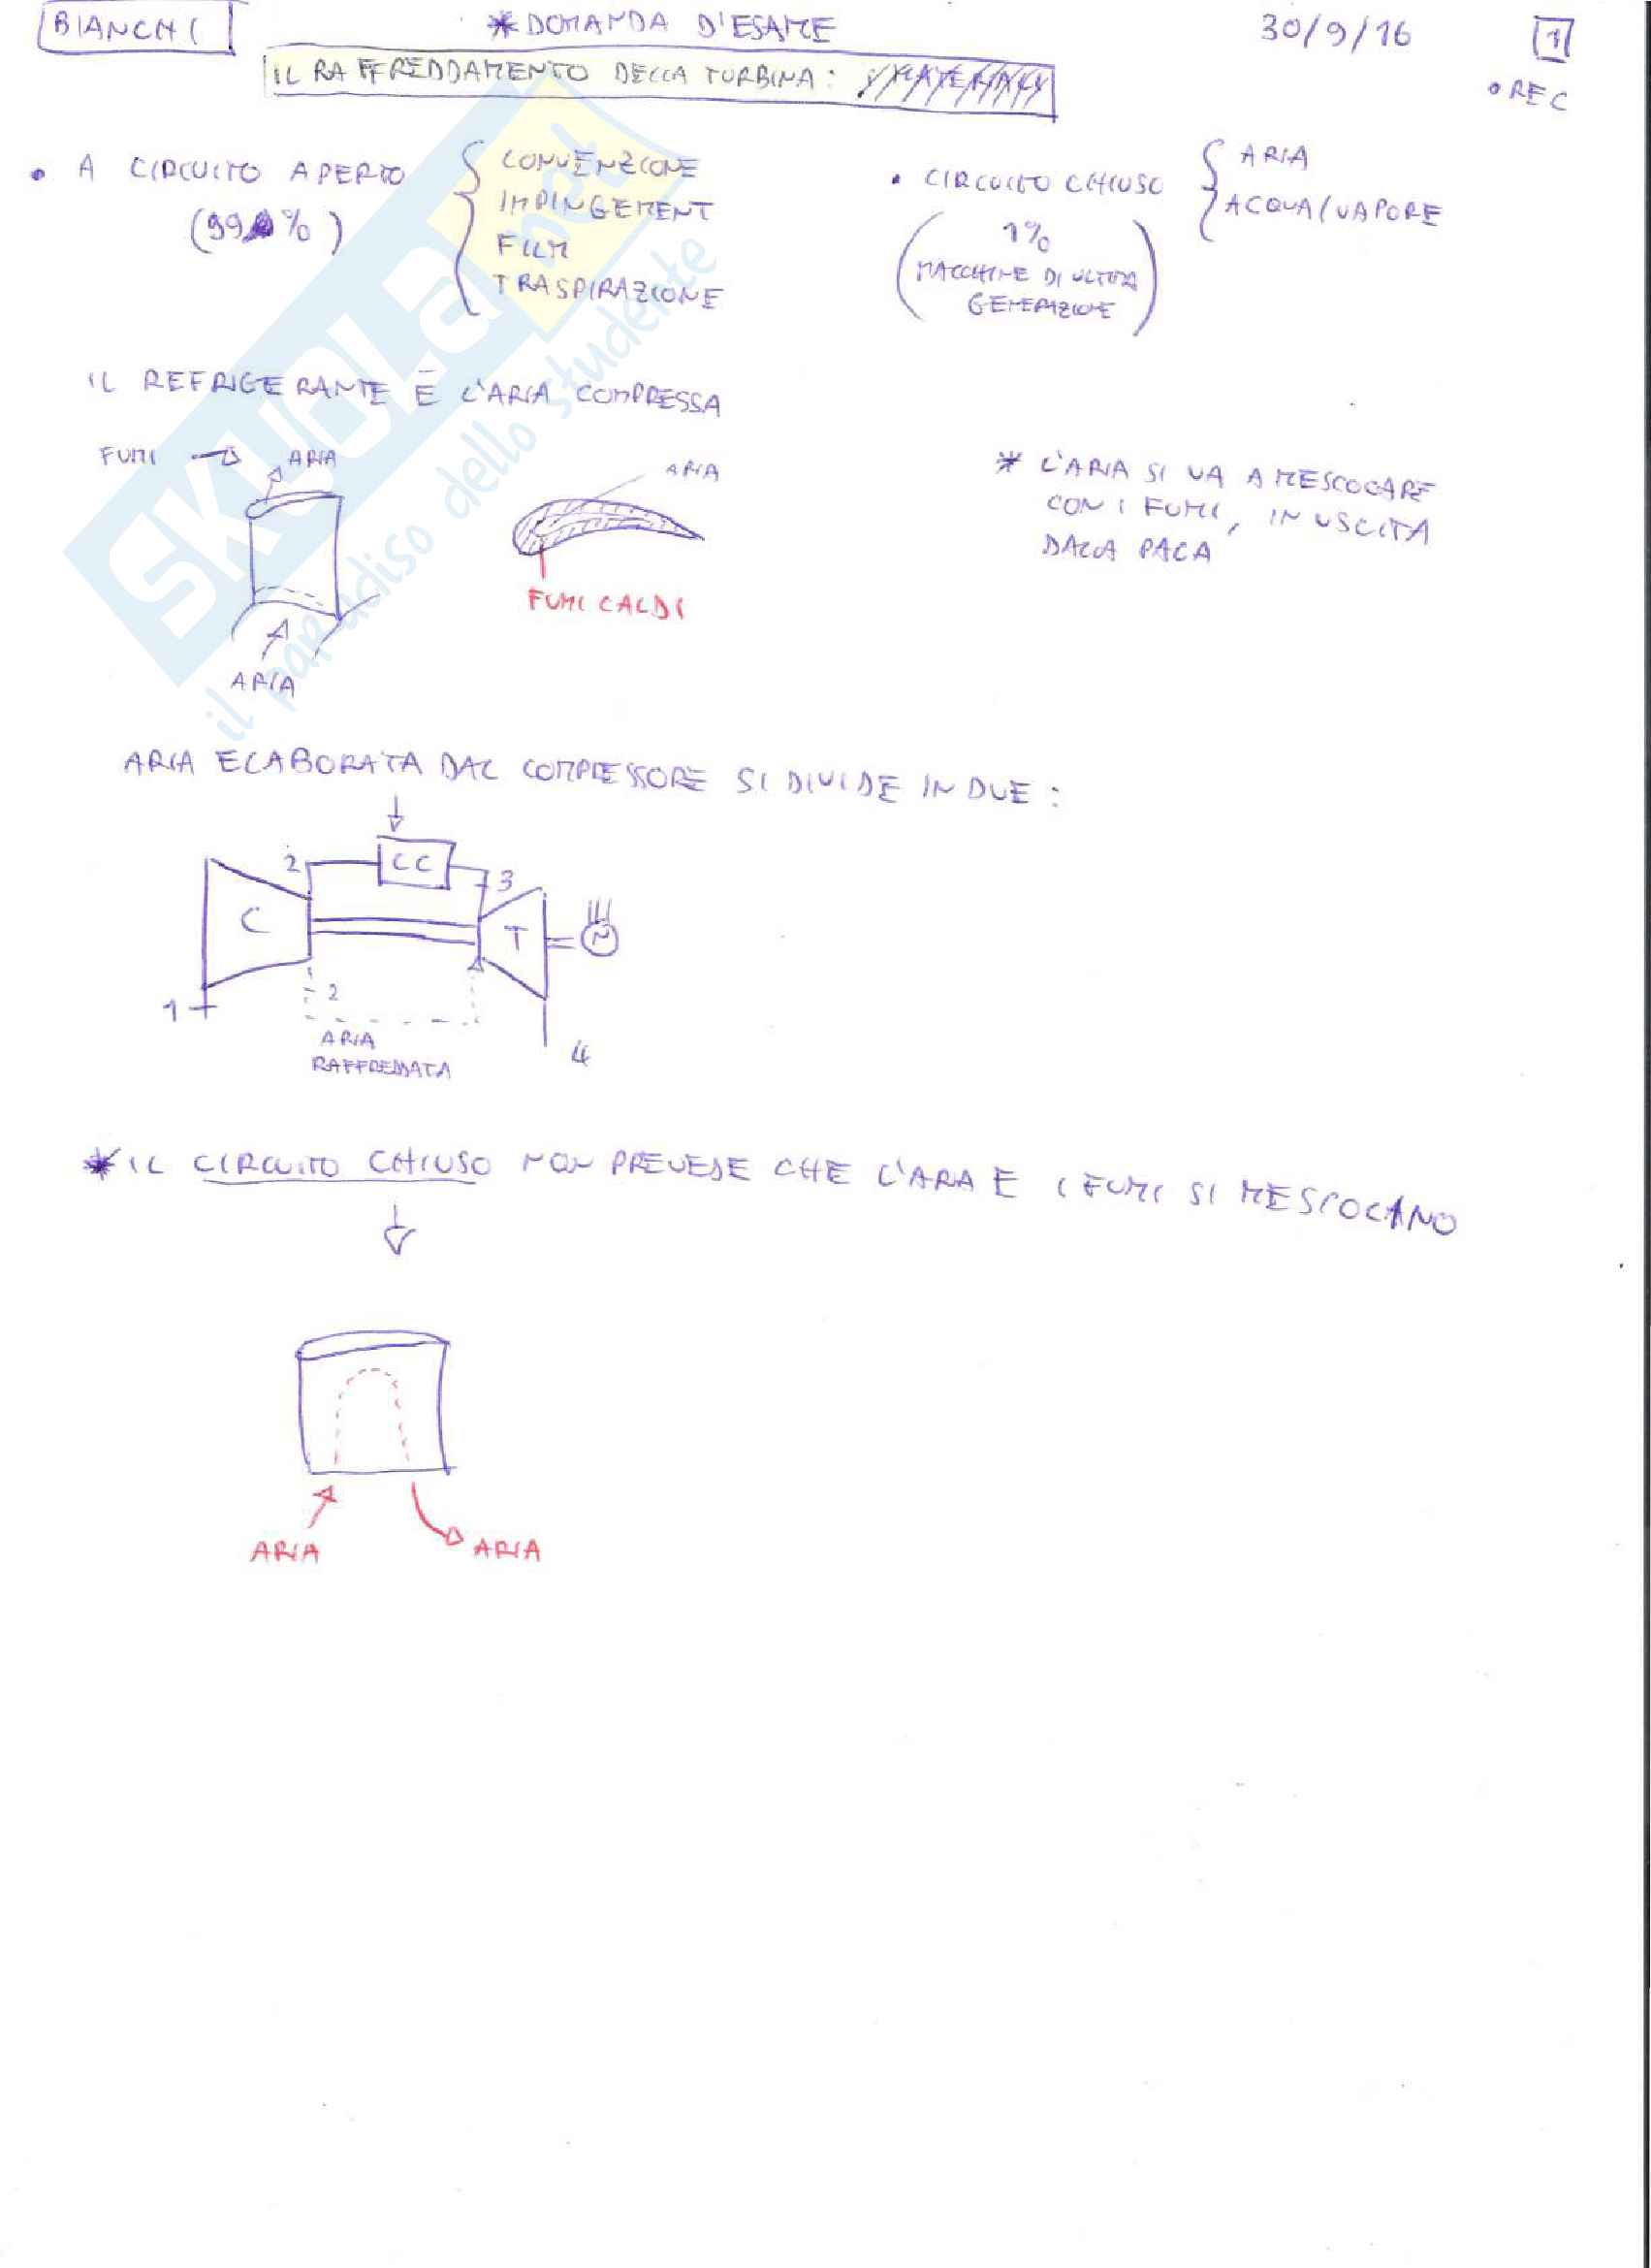 BIANCHI
* DOMANDA D'ESAME
30/9/16
1
IL RAFFREDDAMENTO DELLA TURBINA:
• REC
• A CIRCUITO APERTO
(99%)
CONVENZIONE
IMPINGEMENT
FILM
TRASPIRAZIONE
• CIRCUITO CHIUSO
1%
MACCHINE DI ULTIMA
GENERAZIONE
ARIA
ACQUA/VAPORE
IL REFRIGERANTE È L'ARIA COMPRESSA
FUMI
ARIA
ARIA
ARIA
FUMI CALDI
* L'ARIA SI VA A MESCOLARE
CON I FUMI, IN USCITA
DALLA PALA
ARIA ELABORATA DAL COMPRESSORE SI DIVIDE IN DUE:
2
CC
3
C
T
1
2
ARIA
RAFFREDDATA
4
* IL CIRCUITO CHIUSO NON PREVEDE CHE L'ARIA E I FUMI SI MESCOLANO
ARIA
ARIA
SKUOLA.net
il paradiso dello studente